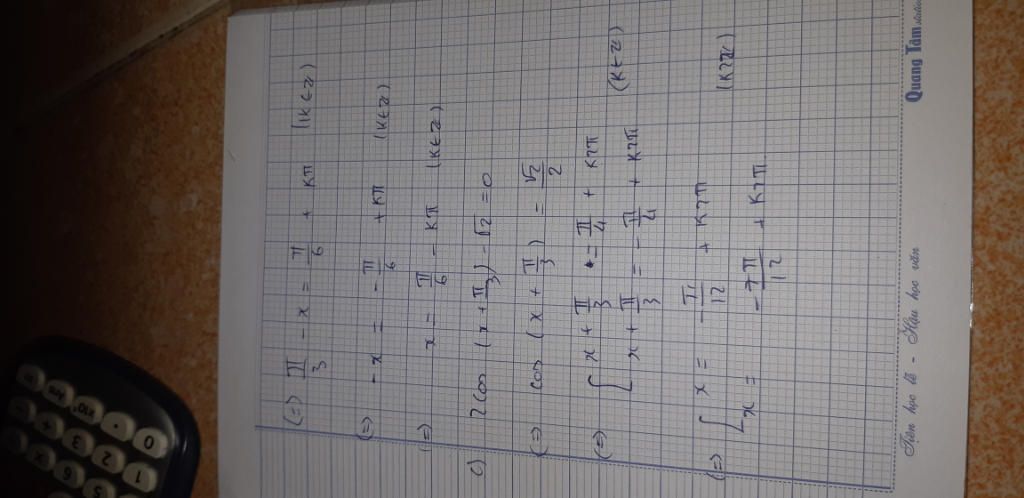 (=) π/3 - x = π/6 + kπ (k ∈ Z)
(=) - x = - π/6 + kπ (k ∈ Z)
(=) x = π/6 - kπ (k ∈ Z)
c) 2cos (x + π/3) - √2 = 0
(=) cos (x + π/3) = √2/2
(=) [ x + π/3 = π/4 + k2π
x + π/3 = - π/4 + k2π (k ∈ Z)
(=) [ x = - π/12 + k2π
x = - 7π/12 + k2π (k2Z)
Tiên học lễ - Hậu học văn
Quang Tâm
0
1
2
3
+
-
x
5
6
Ans
x10